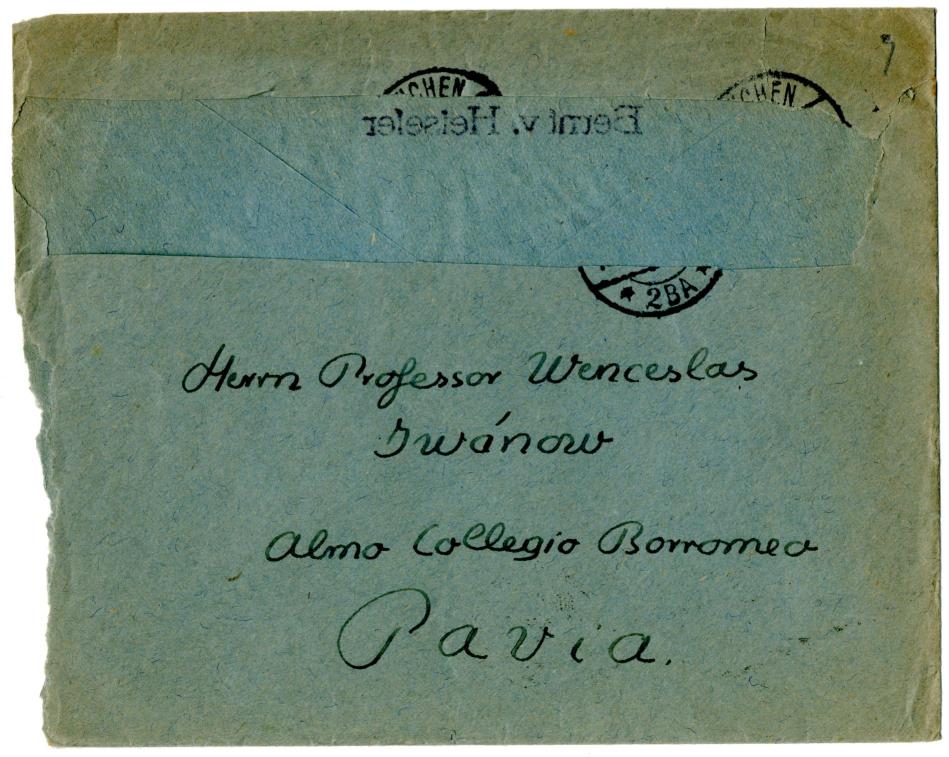 CHEN CHEN
Bernt v. Heiseler
* 2BA *
Herrn Professor Wenceslas
Iwánow
Almo Collegio Borromeo
Pavia.